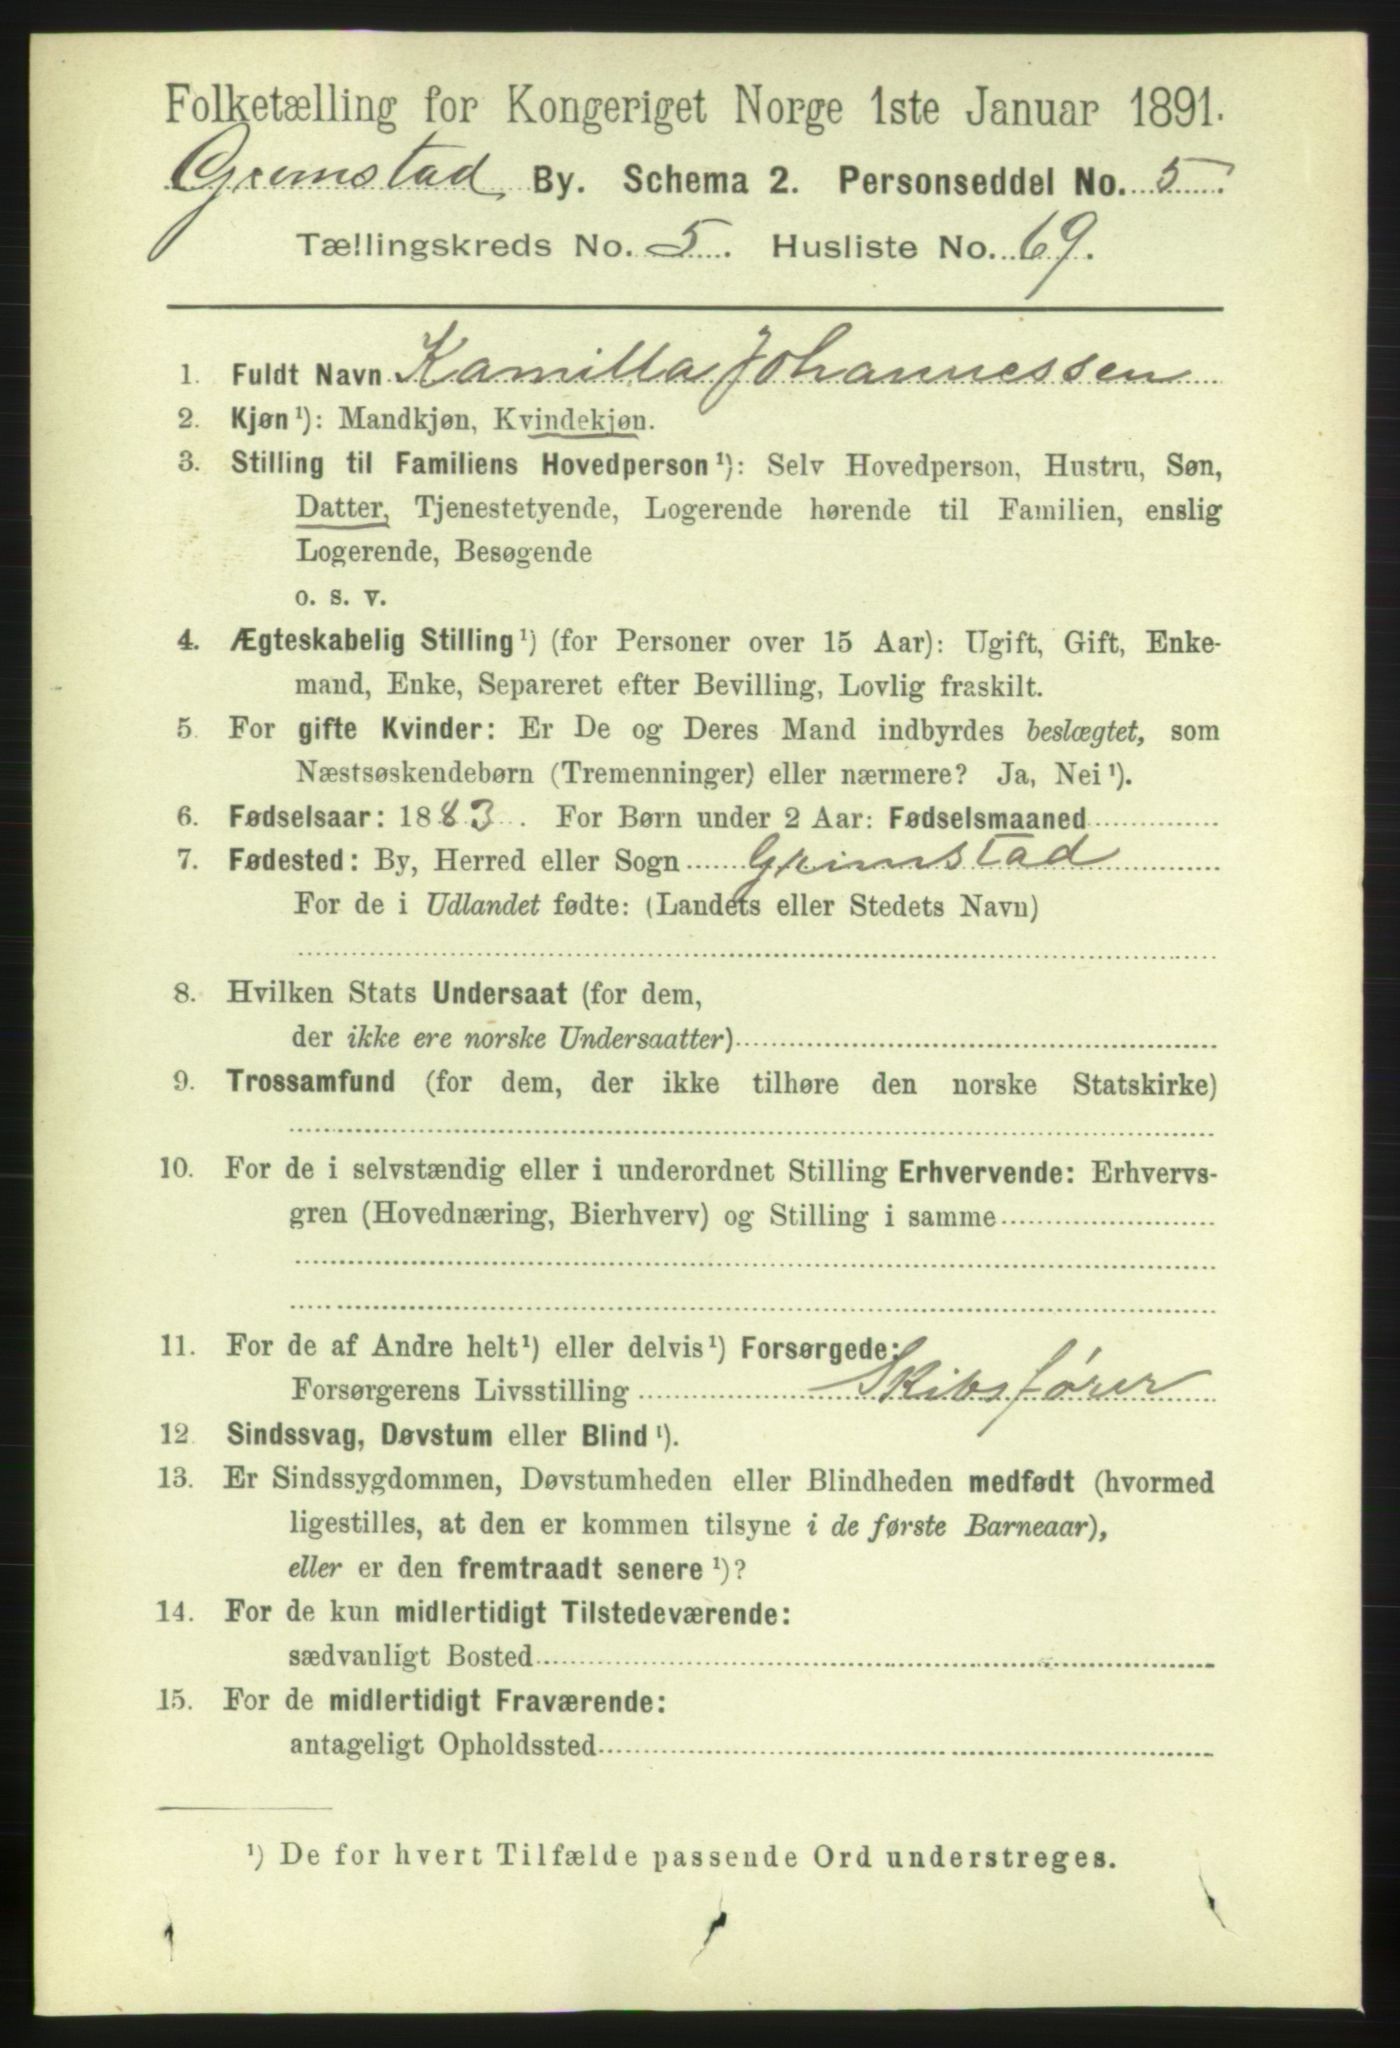 Folketælling for Kongeriget Norge 1ste Januar 1891.
Grimstad By. Schema 2. Personseddel No. 5
Tællingskreds No. 5. Husliste No. 69.
1. Fuldt Navn Kamilla Johannessen
2. Kjøn¹): Mandkjøn, Kvindekjøn.
3. Stilling til Familiens Hovedperson¹): Selv Hovedperson, Hustru, Søn,
Datter, Tjenestetyende, Logerende hørende til Familien, enslig
Logerende, Besøgende
o. s. v.
4. Ægteskabelig Stilling¹) (for Personer over 15 Aar): Ugift, Gift, Enke-
mand, Enke, Separeret efter Bevilling, Lovlig fraskilt.
5. For gifte Kvinder: Er De og Deres Mand indbyrdes beslægtet, som
Næstsøskendebørn (Tremenninger) eller nærmere? Ja, Nei¹).
6. Fødselsaar: 1883. For Børn under 2 Aar: Fødselsmaaned
7. Fødested: By, Herred eller Sogn Grimstad
For de i Udlandet fødte: (Landets eller Stedets Navn)
8. Hvilken Stats Undersaat (for dem,
der ikke ere norske Undersaatter)
9. Trossamfund (for dem, der ikke tilhøre den norske Statskirke)
10. For de i selvstændig eller i underordnet Stilling Erhvervende: Erhvervs-
gren (Hovednæring, Bierhverv) og Stilling i samme
11. For de af Andre helt¹) eller delvis¹) Forsørgede:
Forsørgerens Livsstilling Skibsfører
12. Sindssvag, Døvstum eller Blind¹).
13. Er Sindssygdommen, Døvstumheden eller Blindheden medfødt (hvormed
ligestilles, at den er kommen tilsyne i de første Barneaar),
eller er den fremtraadt senere¹)?
14. For de kun midlertidigt Tilstedeværende:
sædvanligt Bosted
15. For de midlertidigt Fraværende:
antageligt Opholdssted
¹) De for hvert Tilfælde passende Ord understreges.